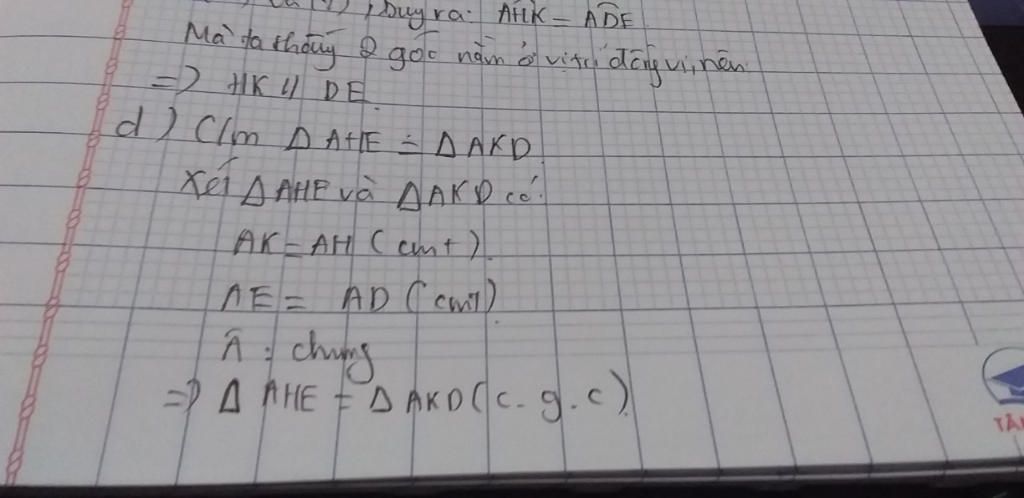 suy ra: AHK = ADE
Mà ta thấy 2 góc nằm ở vị trí đồng vị, nên
=> HK // DE.
d) C/m Δ AHE = Δ AKD
Xét Δ AHE và Δ AKD có:
AK = AH (cmt)
AE = AD (cmt)
Â: chung
=> Δ AHE = Δ AKD (c.g.c)